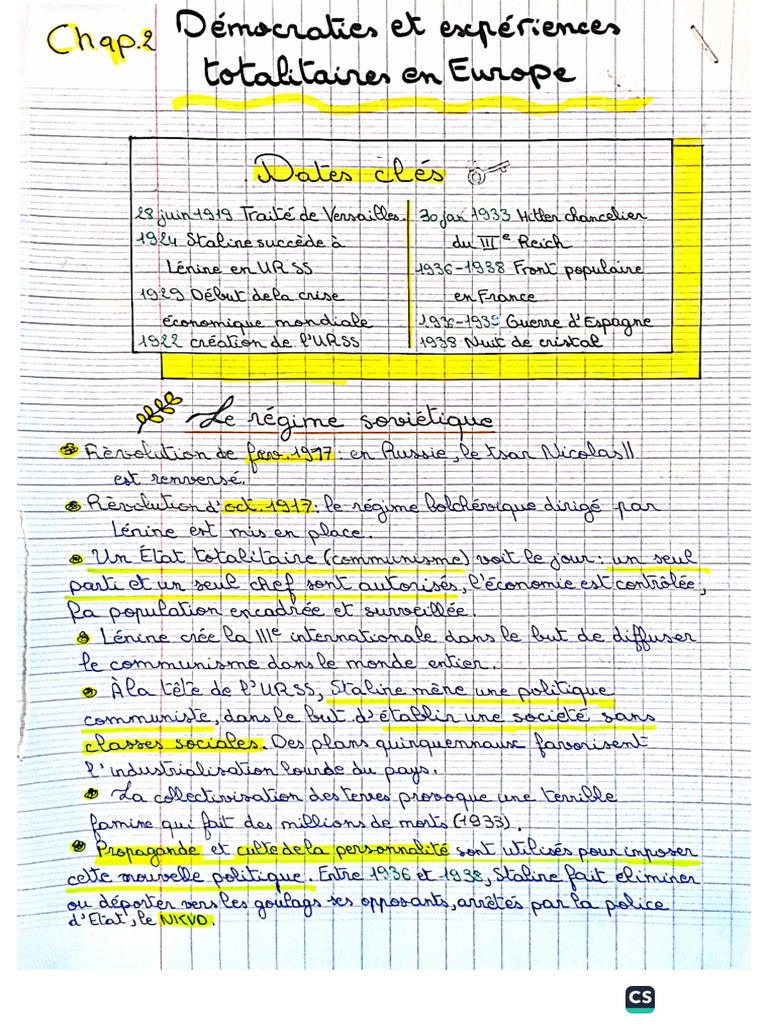 Chap.2 Démocraties et expériences
totalitaires en Europe
Dates clés
28 juin 1919 Traité de Versailles.
1924 Staline succède à
Lénine en URSS
1929 Début de la crise
économique mondiale
1922 création de l'URSS
30 jan 1933 Hitler chancelier
du IIIe Reich
1936-1938 Front populaire
en France
1936-1939 Guerre d'Espagne
1938 Nuit de cristal
Le régime soviétique
Rèvolution de fev. 1917 : en Russie, le tsar Nicolas II
est renversé.
Rèvolution d'oct. 1917 : le régime bolchévique dirigé par
Lénine est mis en place.
Un État totalitaire (communisme) voit le jour : un seul
parti et un seul chef sont autorisés, l'économie est contrôlée,
la population encadrée et surveillée.
Lénine crée la IIIe internationale dans le but de diffuser
le communisme dans le monde entier.
À la tête de l'URSS, Staline mène une politique
communiste, dans le but d'établir une société sans
classes sociales. Des plans quinquennaux favorisent
l'industrialisation lourde du pays.
La collectivisation des terres provoque une terrible
famine qui fait des millions de morts (1933).
Propagande et culte de la personnalité sont utilisés pour imposer
cette nouvelle politique. Entre 1936 et 1938, Staline fait éliminer
ou déporter vers les goulags ses opposants, arrêtés par la police
d'Etat, le NKVD.
CS